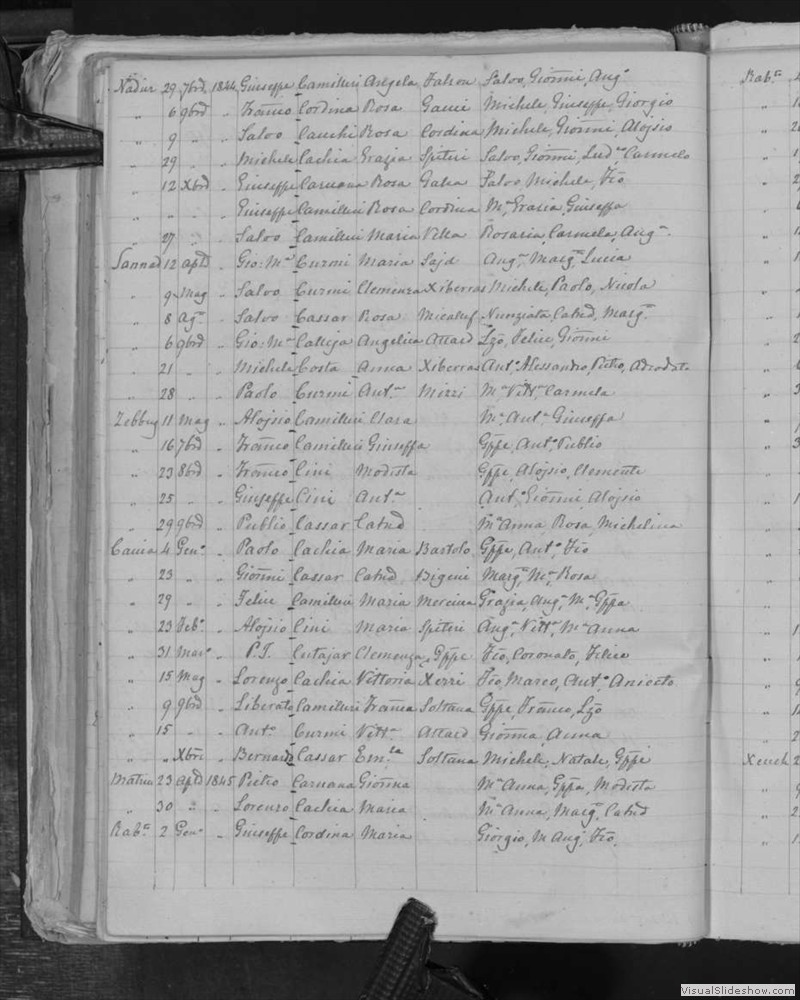 Nadur 29 7bre 1844 Giuseppe Camilleri Angela Falzon Salvo, Gioñni, Aug.ᵃ
" 6 9bre " Franco Cordina Rosa Gauci Michele, Giuseppe, Giorgio
" 9 " " Salvo Cauchi Rosa Cordina Michele, Gioñni, Aloysio
" 29 " " Michele Cachia Grazia Spiteri Salvo, Gioñni, Lud.ᵃ, Carmelo
" 12 Xbre " Giuseppe Caruana Rosa Galea Salvo, Michele, Fco
" " " " Giuseppe Camilleri Rosa Cordina M.ᵃ Grazia, Giuseppa
" 27 " " Salvo Camilleri Maria Vella Rosaria, Carmela, Aug.ᵃ
Sannat 12 aple " Gio: M.ᵃ Curmi Maria Said Aug.ᵃ, Marg.ᵃ, Lucia
" 9 Mag " Salvo Curmi Clemenza Xiberras Michele, Paolo, Nicola
" 8 Ag.ᵒ " Salvo Cassar Rosa Micallef Nunziata, Catnd, Marg.ᵃ
" 6 9bre " Gio: M.ᵃ Calleja Angelica Attard Lzo, Felice, Gioñni
" 21 " " Michele Costa Anna Xiberras Ant.ᵒ Alessandro, Pietro, Adeodato
" 28 " " Paolo Curmi Ant.ᵃ Mizzi M.ᵃ Vitt.ᵃ Carmela
Zebbug 11 Mag " Aloysio Camilleri Clara M.ᵃ Ant.ᵃ Giuseppa
" 16 7bre " Franco Camilleri Giuseppa Gppe, Ant.ᵒ Publio
" 23 8bre " Franco Cini Modesta Gppe, Aloysio, Clemente
" 25 " " Giuseppe Cini Ant.ᵃ Ant.ᵒ Gioñni, Aloysio
" 29 9bre " Publio Cassar Catnd M.ᵃ Anna Rosa, Michelina
Caccia 4 Gen.ᵒ " Paolo Cachia Maria Bartolo Gppe, Ant.ᵒ, Fco
" 23 " " Gioñni Cassar Catnd Bigeni Marg.ᵃ, M.ᵃ, Rosa
" 29 " " Felice Camilleri Maria Mercieca Grazia, Aug.ᵃ, M.ᵃ, Gppa
" 23 Feb.ᵒ " Aloysio Cini Maria Spiteri Aug.ᵃ, Vitt.ᵃ, M.ᵃ Anna
" 31 Mar.ᵒ " P.I. Cutajar Clemenza, Gppe Fco, Coronato, Felice
" 15 Mag " Lorenzo Cachia Vittoria Xerri Fco, Marco, Ant.ᵒ Aniceto
" 9 9bre " Liberato Camilleri Franca Soltana Gppe, Franco, Lzo
" 15 " " Ant.ᵒ Curmi Vitt.ᵃ Attard Gioñna, Anna
" " Xbre " Bernardo Cassar Em.ˡᵃ Soltana Michele, Natale, Gppe
Matrice 23 aple 1845 Pietro Caruana Gioñna M.ᵃ Anna, Gppa, Modesta
" 30 " " Lorenzo Cachia Maria M.ᵃ Anna, Marg.ᵃ, Catnd
Rab.ᵗᵒ 2 Gen.ᵒ " Giuseppe Cordina Maria Giorgio, M Aug, Fco.
Rab.ᵗᵒ
Xeuch
VisualSlideshow.com